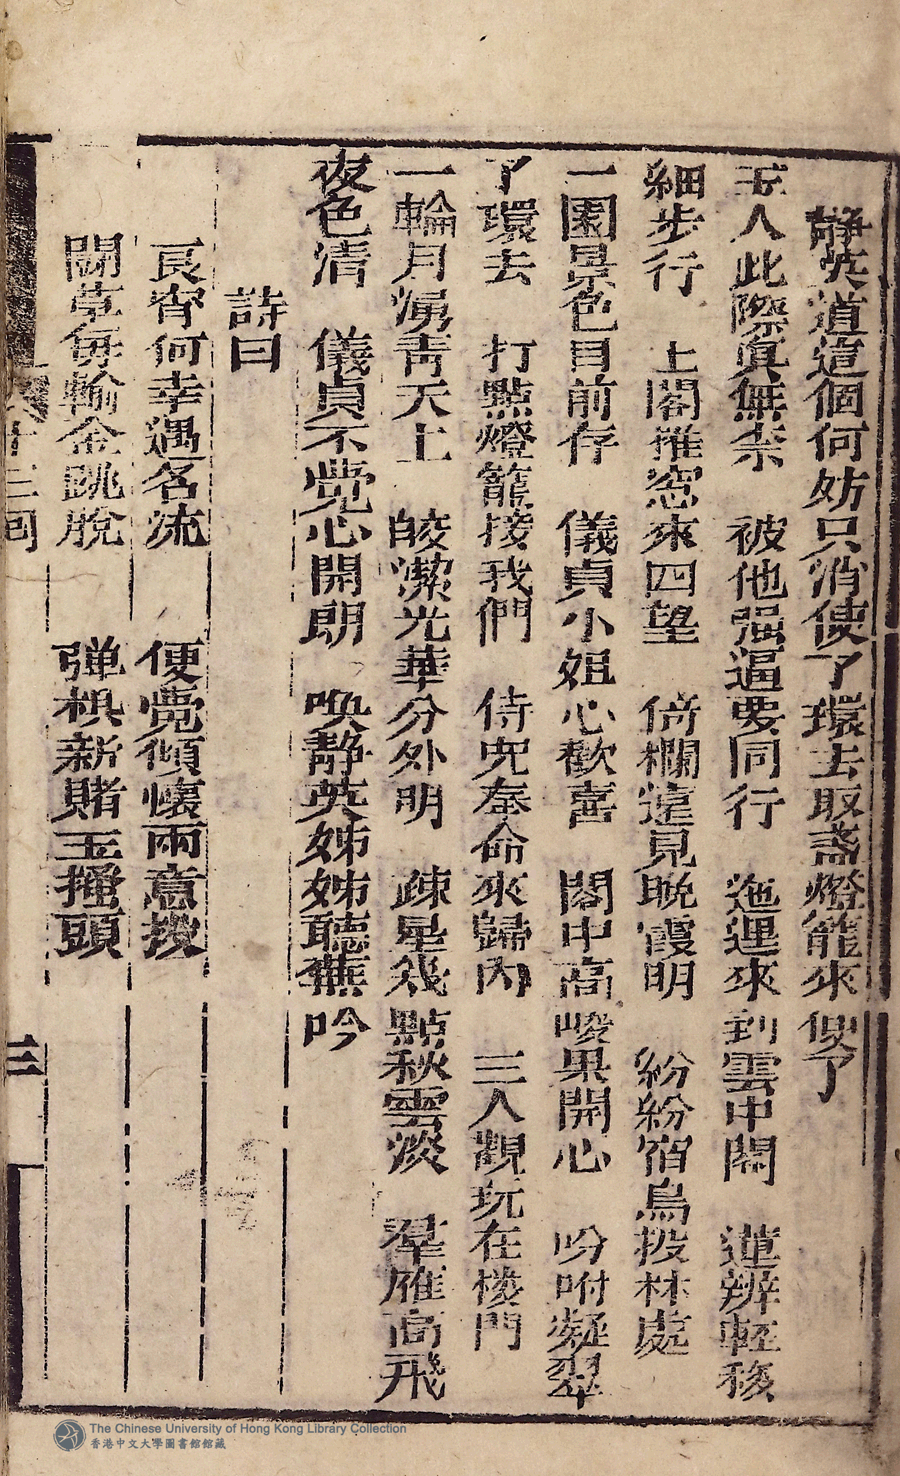 靜英道這個何妨只消使了環去取盞燈籠來便了
玉人此際真無奈　被他强逼要同行　迤逦來到雲中閣　蓮辨輕移
細步行　上閣推窓來四望　倚欄遠見晚霞明　紛紛宿鳥投林處
一園景色目前存　儀貞小姐心歡喜　閣中高峻果開心　吩咐凝翠
了環去　打點燈籠接我們　侍兒奉命來歸內　三人觀玩在樓門
一輪月湧青天上　皎潔光華分外明　疎星幾點秋雲淡　羣雁高飛
夜色清　儀貞不覺心開朗　喚靜英姊姊聽蕪吟
詩曰
良宵何幸遇名流　便覺傾懷兩意投
鬬草每輸金跳脫　彈棋新賭玉搔頭
十三回
三
The Chinese University of Hong Kong Library Collection
香港中文大學圖書館館藏